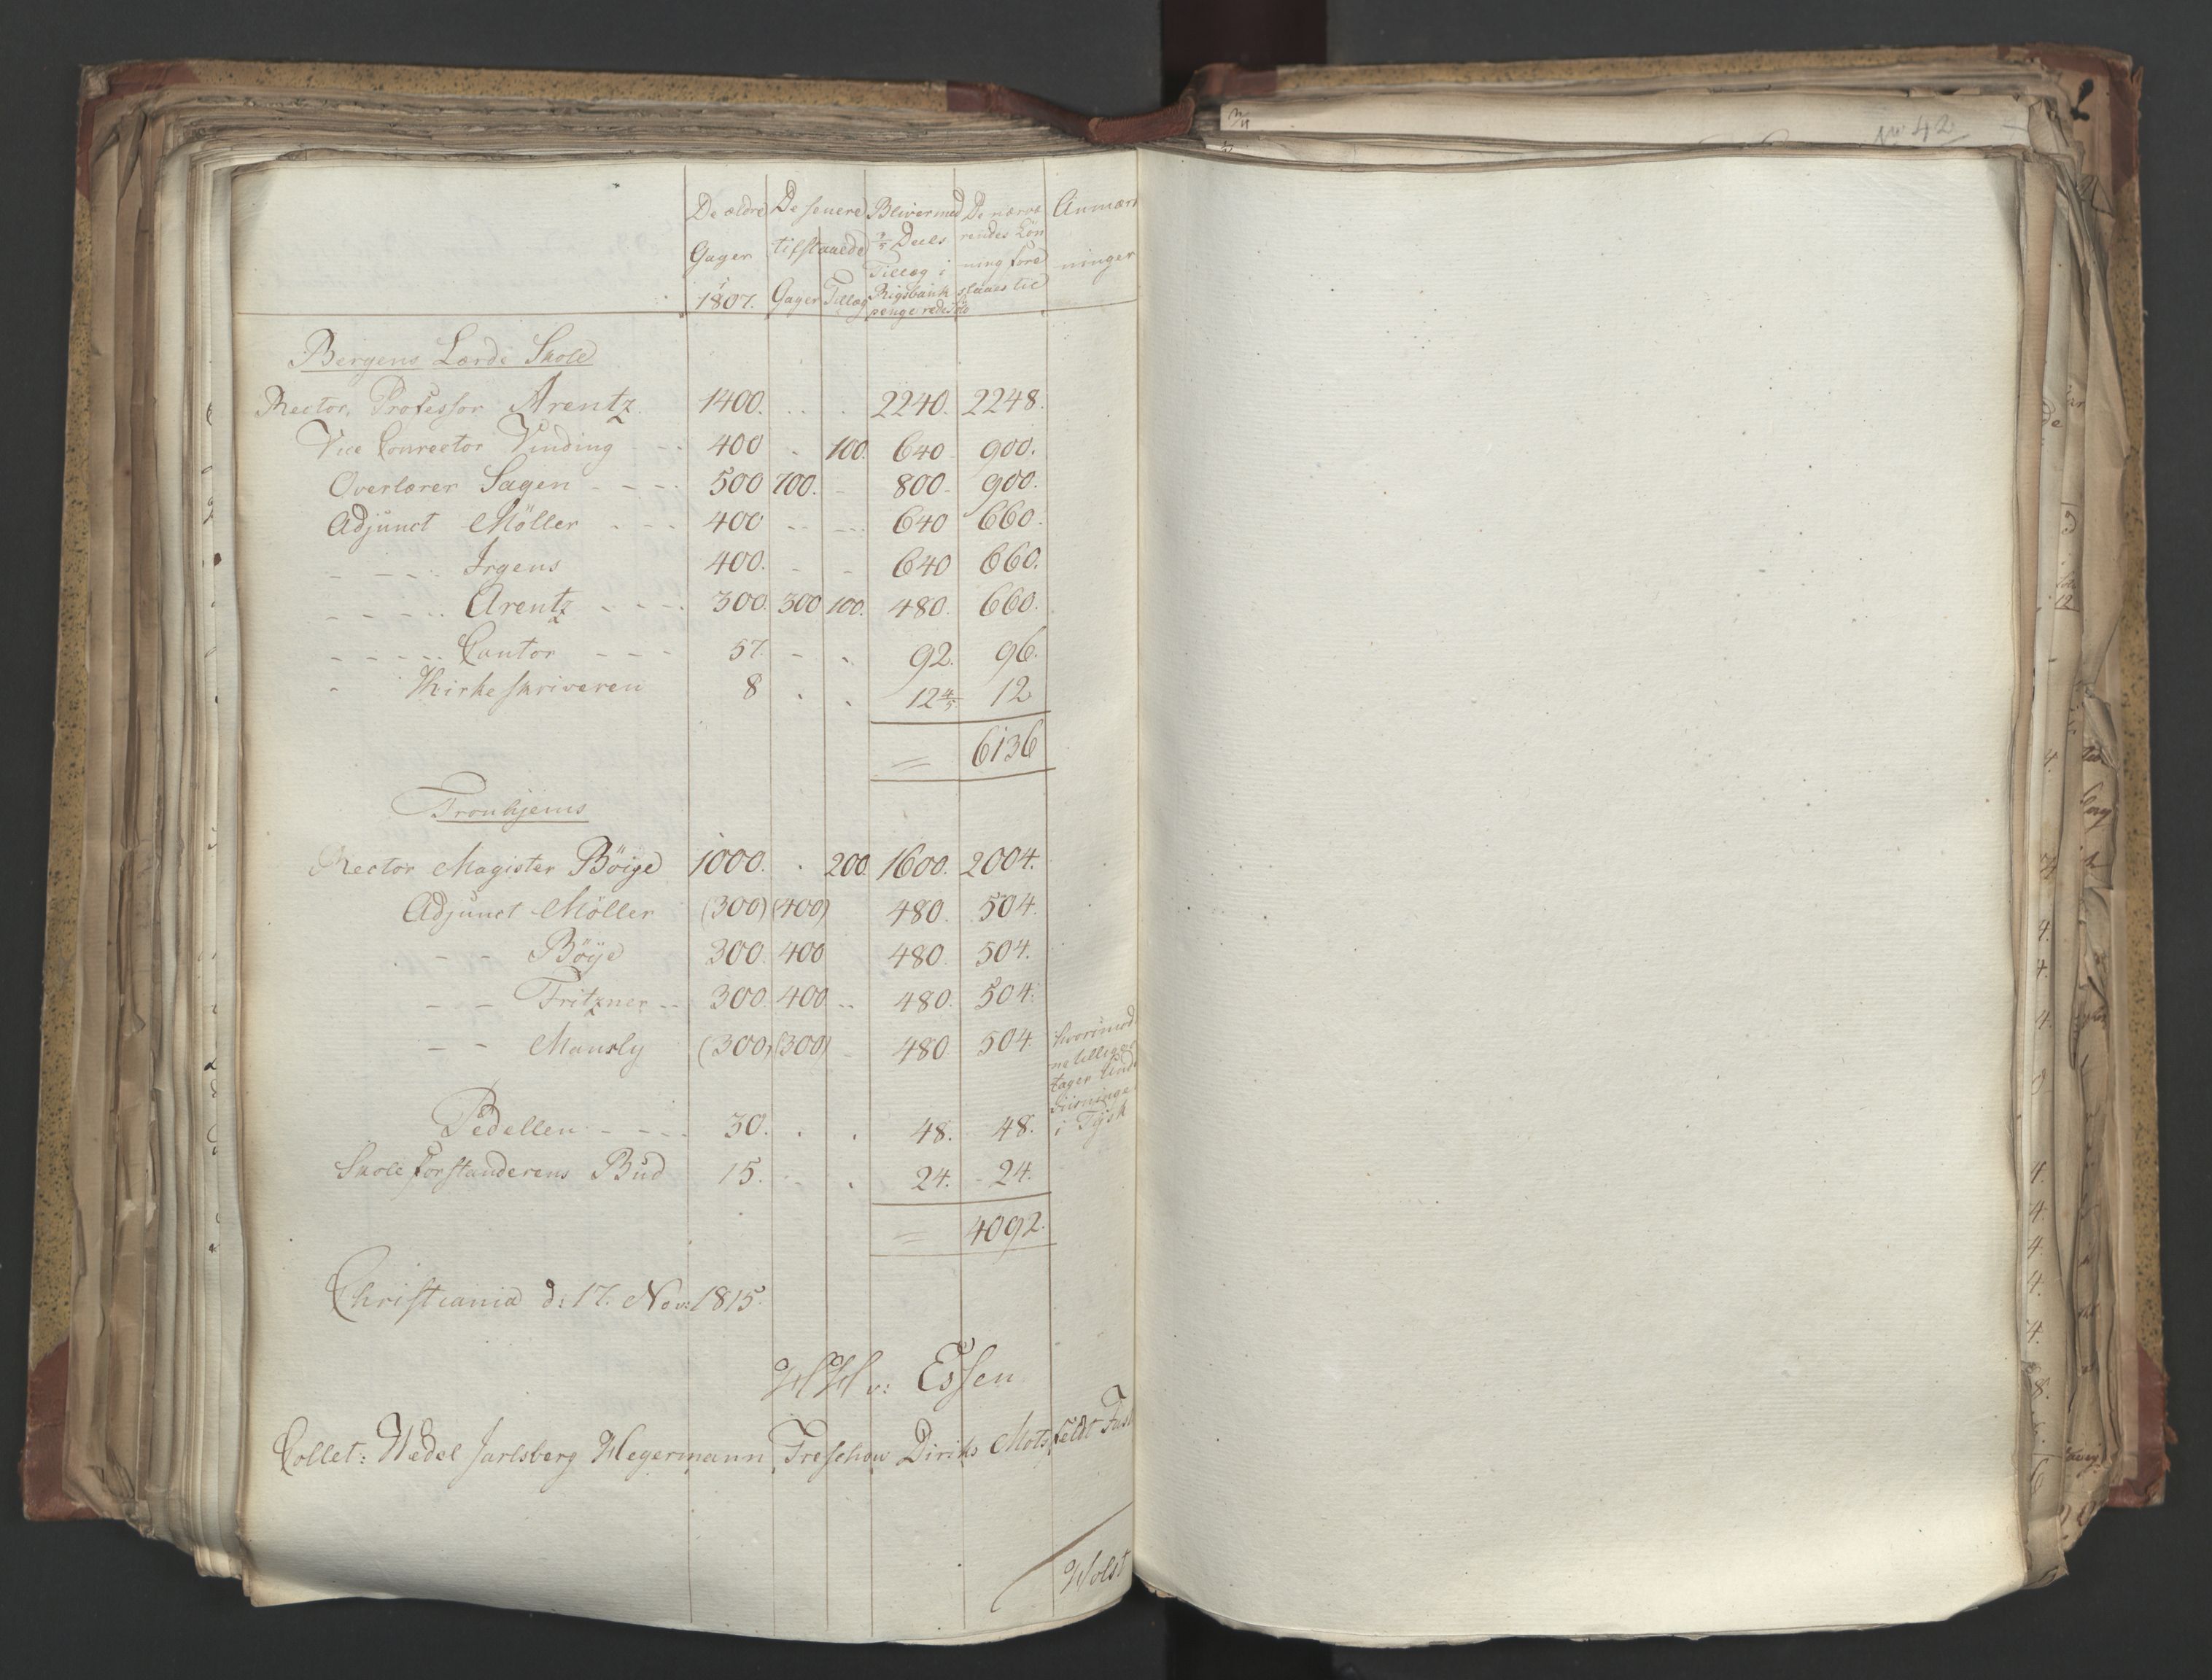 De ældre De senere Blivermed De nærvæ Anmærk
Gager tilstaaede 3/5 Deels rendes Lön ninger
i Tillæg i ning fore
1807. Gager Tillæg Rigsbank slaaes til
penge redes Sölv
Bergens Lærde Skole
Rector, Professor Arentz. 1400. . . . 2240. 2248.
Vice Conrector Vinding - - - 400 . 100. 640 900.
Overlærer Sagen - - - - 500 700. - 800 900.
Adjunct Möller - - - 400 - - - - 640 660.
- - - - Irgens 400. - - 640 660.
- - - - Arentz - - - - 300. 300 100. 480. 660.
- - - - - Cantor - - - 57. - . 92. 96.
- Kirkeskriveren 8 . . 12 4/5 12
= 6136
Tronhjems
Rector Magister Böige 1000. . 200. 1600. 2004.
Adjunct Möller (300) (400) 480. 504.
- - Böye 300. 400 480. 504.
- - Fritzner - - 300. 400 - - 480. 504.
- - Mansly (300) (300) - 480 504. hvorimod
tager Und
i Tysk
Pedellen - - - - 30. . . 48. 48.
Skoleforstanderens Bud 15. - . 24. 24.
= 4092.
Christiania d: 17. Nov: 1815.
HH v: Essen
Collet: Wedel Jarlsberg Hegermann Treschow Diriks Motsfeldt Fast
Holst
№ 42